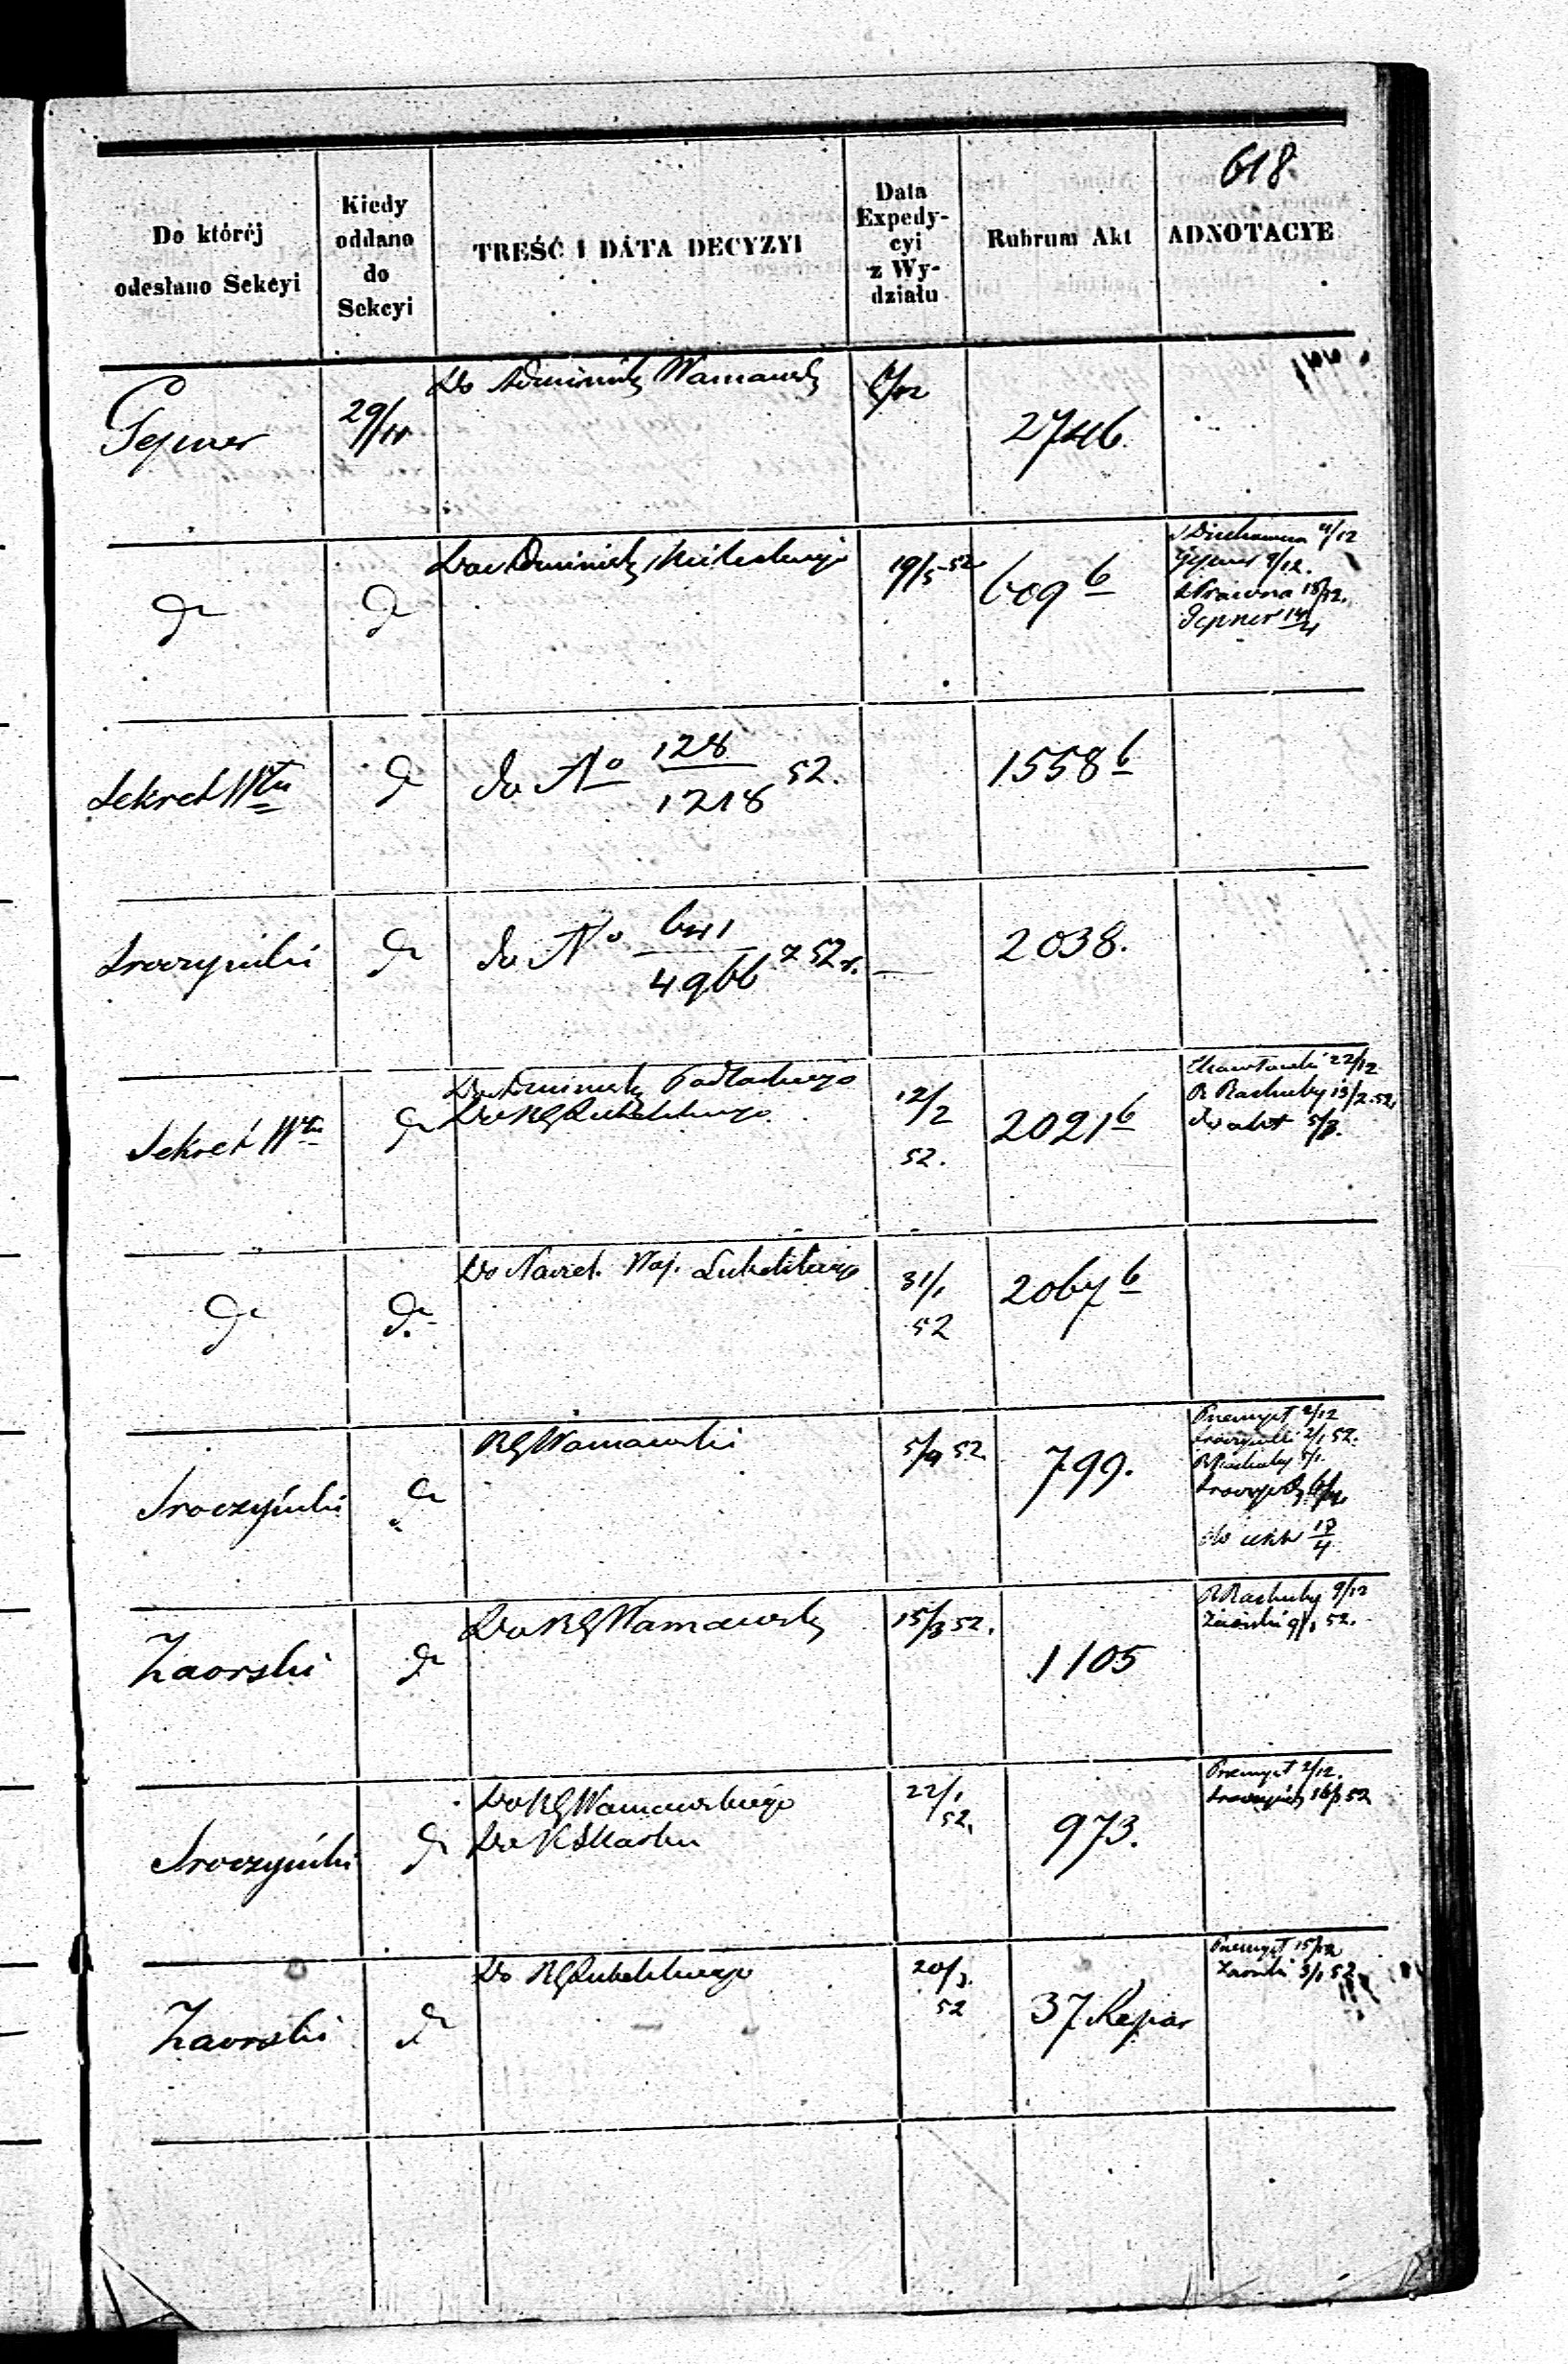 618.
Do któréj
odesłano Sekcyi
Kiedy
oddano
do
Sekcyi
TREŚĆ I DATA DECYZYI
Data
Expedy-
cyi
z Wy-
działu
Rubrum Akt
ADNOTACYE
Gepner
29/11
Do Administr. Warszawsk.
2746.
do
do
19/5 52.
609 b
Gepner 9/12.
Prawna 18/12.
Gepner 14/4
Sekret Włu
do
do No 128/1218 52.
1558 b
Sroczyński
do
do No 641/4966 z 52 r.
—
2038.
Sekret Włu
do
Do Administr. Podlaskiego
Do RG Lubelskiego
12/2
52.
2021 b
22/12
R Rachuby 13/2 52.
do akt 5/3.
do
do
Do Naczel. Woj. Lubelskiego
31/1
52
2067 b
Sroczyński
do
RG Warszawski
5/9 52
799.
Przemysł 2/12
Sroczyński 2/1 52.
R Rachuby 5/1
do akt 17/4
Zaorski
do
Do RG Warszawsk.
15/3 52.
1105
R Rachuby 9/12
Zaorski 9/1 52.
Sroczyński
do
Do RG Warszawskiego
Do K Skarbu
22/1
52.
973.
Przemysł 2/12.
Sroczyńsk 16/1 52
Zaorski
do
Do RG Lubelskiego
20/3.
52
37 Repar
Przemysł 15/12
Zaorski 3/1 52